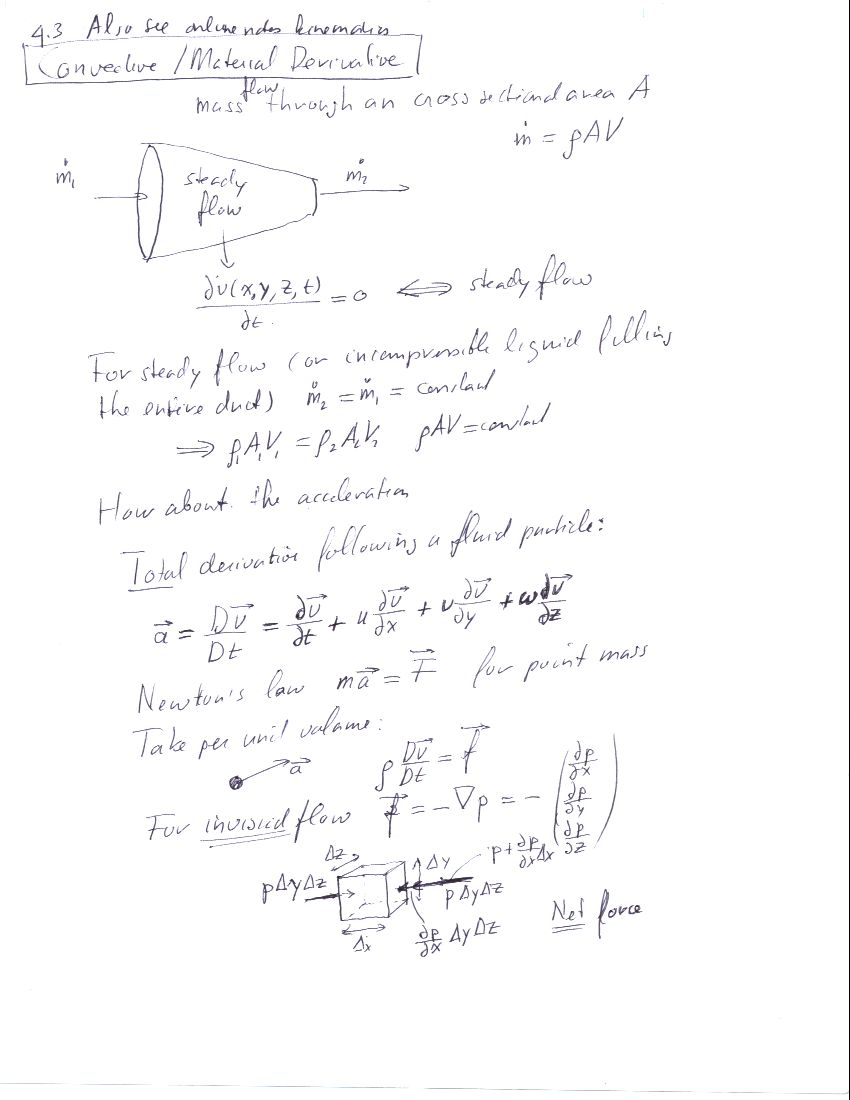 4.3 Also see online notes kinematics
Convective / Material Derivative
mass flow through an cross sectional area A
ṁ = ρAV
ṁ₁
steady
flow
ṁ₂
∂v(x,y,z,t)/∂t = 0 ⟺ steady flow
For steady flow (or incompressible liquid filling
the entire duct) ṁ₂ = ṁ₁ = constant
⟹ ρ₁A₁V₁ = ρ₂A₂V₂ ρAV = constant
How about the acceleration
Total derivative following a fluid particle:
a⃗ = Dv⃗/Dt = ∂v⃗/∂t + u ∂v⃗/∂x + v ∂v⃗/∂y + w ∂v⃗/∂z
Newton's law ma⃗ = F⃗ for point mass
Take per unit volume:
a⃗
ρ Dv⃗/Dt = f⃗
For inviscid flow f⃗ = -∇p = - (∂p/∂x ∂p/∂y ∂p/∂z)
Δz
Δy
p + ∂p/∂x Δx
pΔyΔz
pΔyΔz
Δx
∂p/∂x ΔyΔz
Net force